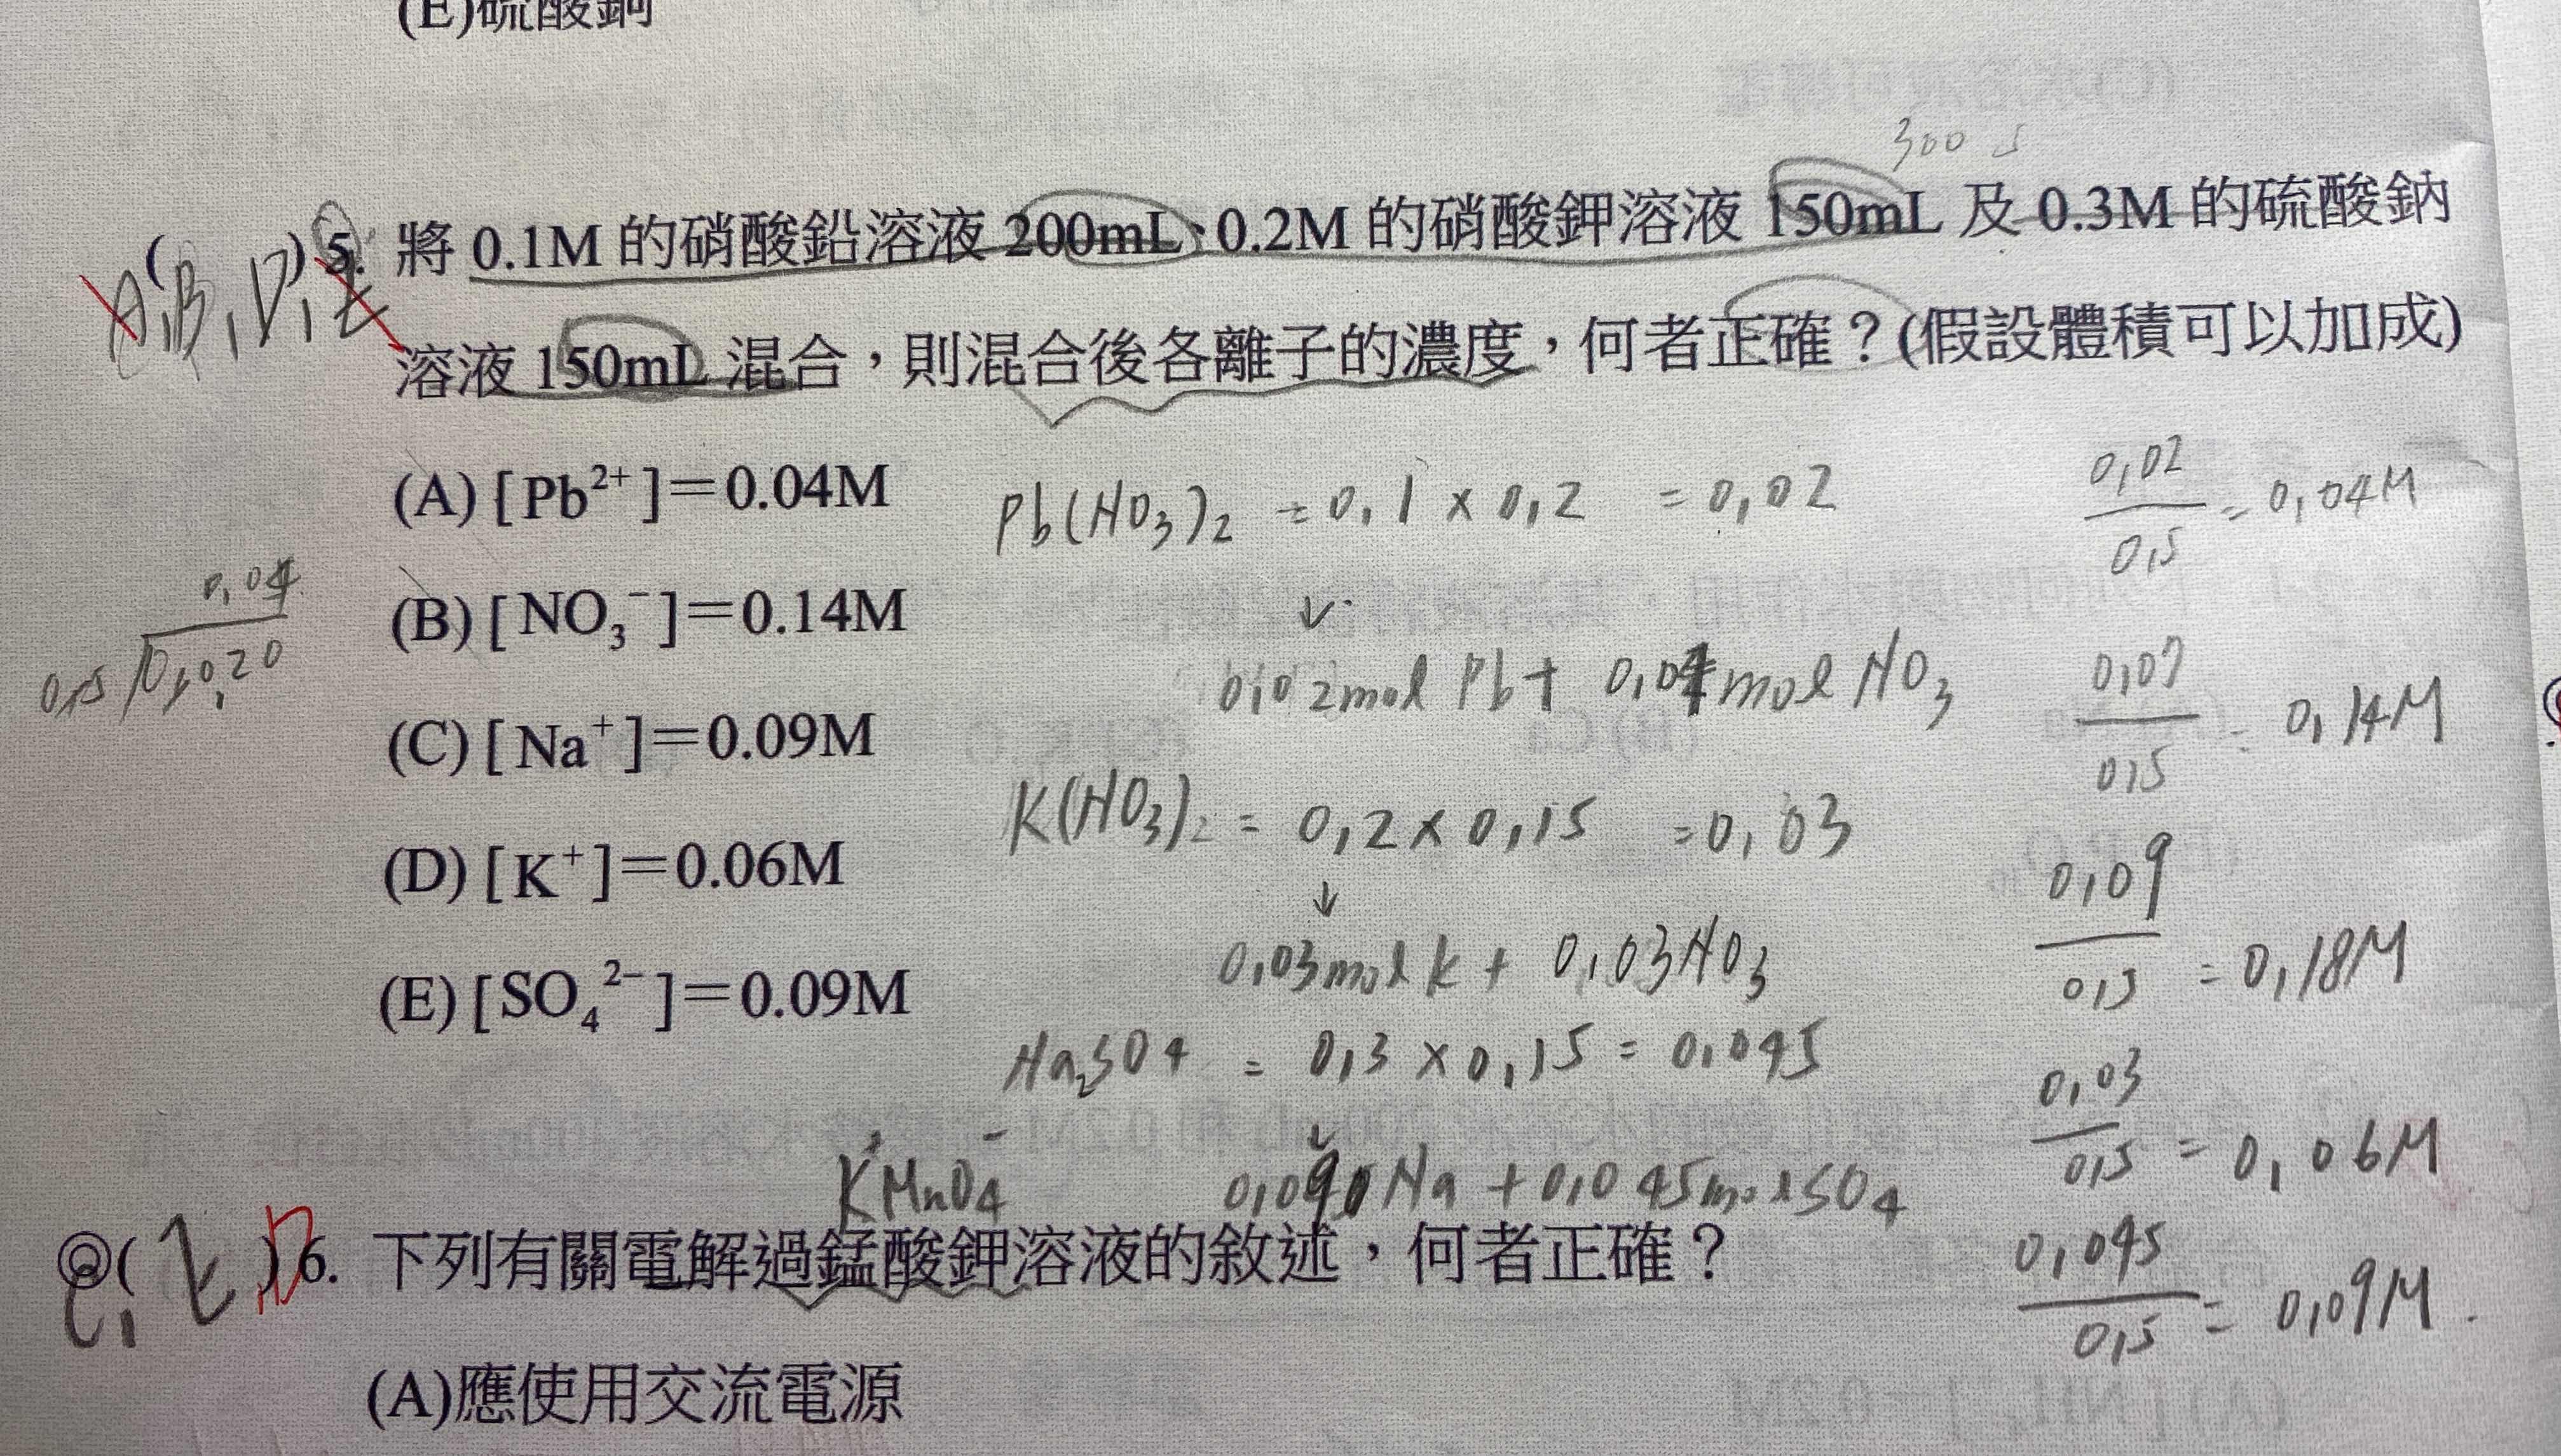 (E)硫酸銅
300 5
( A,B,D,E )5. 將 0.1M 的硝酸鉛溶液 200mL、0.2M 的硝酸鉀溶液 150mL 及 0.3M 的硫酸鈉
溶液 150mL 混合，則混合後各離子的濃度，何者正確？(假設體積可以加成)
(A) [Pb²⁺]＝0.04M
Pb(NO₃)₂ = 0,1 × 0,2 = 0,02
0,02 / 0,5 = 0,04M
(B) [NO₃⁻]＝0.14M
0,04
0,5 0,020
0,02mol Pb + 0,04mol NO₃
0,07 / 0,5 = 0,14M
(C) [Na⁺]＝0.09M
K(NO₃)₂ = 0,2 × 0,15 = 0,03
(D) [K⁺]＝0.06M
↓
0,03mol K + 0,03NO₃
0,09 / 0,5 = 0,18M
(E) [SO₄²⁻]＝0.09M
Na₂SO₄ = 0,3 × 0,15 = 0,045
0,03 / 0,5 = 0,06M
↓
K⁺MnO₄⁻
0,090Na + 0,045mol SO₄
( C,E )D 6. 下列有關電解過錳酸鉀溶液的敘述，何者正確？
0,045 / 0,5 = 0,09M
(A)應使用交流電源